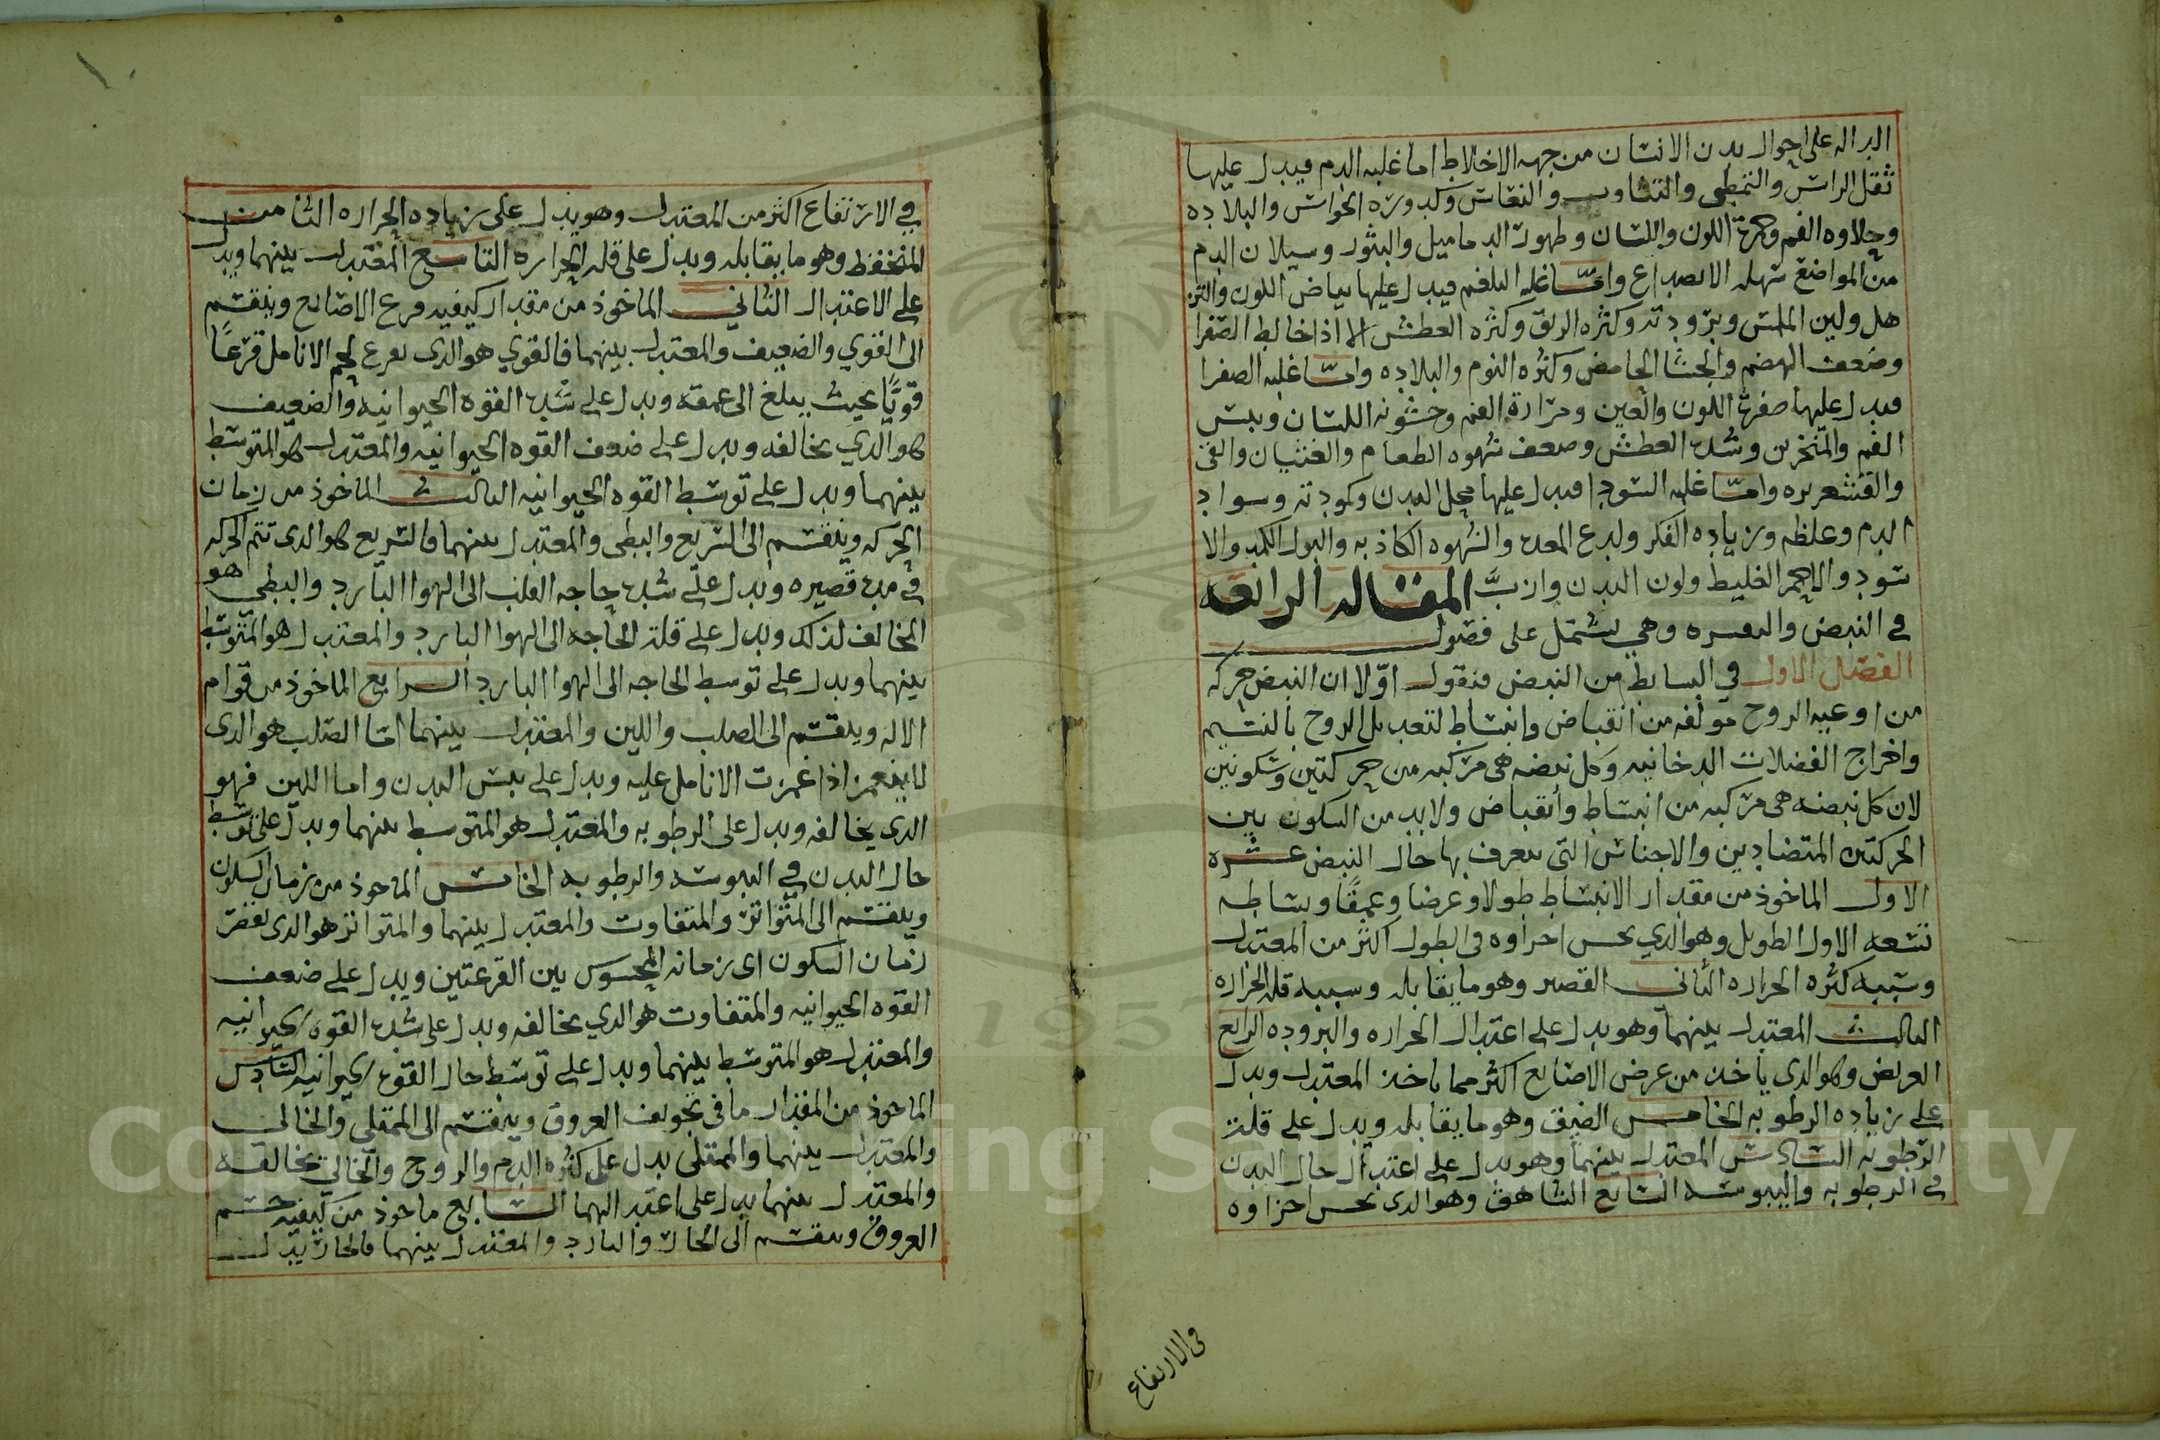 الداله على احوال بدن الانسان من جهه الاخلاط اما غلبه الدم فيدل عليها
ثقل الراس والتمطي والتثاوب والنعاس وكدورة الحواس والبلاده
وحلاوه الفم وحمرة اللون واللسان وظهور الدماميل والبثور وسيلان الدم
من المواضع سهله الانصداع وامّا غلبه البلغم فيدل عليها بياض اللون والتر
هل ولين الملمس وبرودته وكثره الريق وكثره العطش الا اذا خالط الصفرا
وضعف الهضم والجشا الحامض وكثره النوم والبلاده وامّا غلبه الصفرا
فيدل عليها صفرة اللون والعين ومرارة الفم وخشونه اللسان ويبس
الفم والمنخرين وشده العطش وضعف شهوه الطعام والغثيان والقى
والقشعريره وامّا غلبه السودا فيدل عليها محل البدن وكمودته وسواد
الدم وغلظه وزياده الفكر ولدع المعده والشهوه الكاذبه والبول الكمد والا
سود والاحمر الغليط ولون البدن وازبَّ المقاله الرابعه
في النبض والتفسره وهي تشتمل على فصول
الفصل الاول في البسايط من النبض فنقول اوّلا ان النبض حركه
من اوعيه الروح مولفه من انقباض وانبساط لتعديل الروح بالنسيم
واخراج الفضلات الدخانيه وكل نبضه هى مركبه من حركتين وسكونين
لان كل نبضه هى مركبه من انبساط وانقباض ولابد من السكون بين
الحركتين المتضادين والاجناس التى يتعرف بها حال النبض عشره
الاول الماخوذ من مقدار الانبساط طولا وعرضا وعمقًا وبسايطه
تسعه الاول الطويل وهو الذي يحس اجزاوه فى الطول اكثر من المعتدل
وسببه كثره الحراره الثانى القصير وهو ما يقابله وسببه قله الحراره
الثالث المعتدل بينهما وهو يدل على اعتدال الحراره والبروده الرابع
العريض وهو الذى ياخذ من عرض الاصابع اكثر مما ياخذ المعتدل ويدل
على زياده الرطوبه الخامس الضيق وهو ما يقابله ويدل على قلة
الرطوبه السادس المعتدل بينهما وهو يدل على اعتدال حال البدن
فى الرطوبه واليبوسه السابع الشاهق وهو الذى يحس اجزاوه
فى الارتفاع
في الارتفاع اكثر من المعتدل وهو يدل على زياده الحراره الثامن
المنخفظ وهو ما يقابله ويدل على قله الحراره التاسع المعتدل بينهما ويدل
على الاعتدال الثاني الماخوذ من مقدار كيفيه قرع الاصابع وينقسم
الى القوي والضعيف والمعتدل بينهما فالقوي هو الذى يقرع لحم الانامل قرعًا
قويًّا بحيث يبلغ الى عمقه ويدل على شده القوه الحيوانيه والضعيف
هو الذي يخالفه ويدل على ضعف القوه الحيوانيه والمعتدل هو المتوسط
بينهما ويدل على توسط القوه الحيوانيه الثالث الماخوذ من زمان
الحركه وينقسم الى السريع والبطى والمعتدل بينهما فالسريع هو الذى تتم الحركه
في مده قصيره ويدل على شده حاجه القلب الى الهوا البارد والبطى هو
المخالف لذلك ويدل على قلة الحاجه الى الهوا البارد والمعتدل هو المتوسط
بينهما ويدل على توسط الحاجه الى الهوا البارد الرابع الماخوذ من قوام
الاله وينقسم الى الصلب واللين والمعتدل بينهما امّا الصّلب هو الذى
لا ينغمز اذا غمزت الانامل عليه ويدل على يبس البدن واما اللين فهو
الذى يخالفه ويدل على الرطوبه والمعتدل هو المتوسط بينهما ويدل على توسط
حال البدن في اليبوسه والرطوبه الخامس الماخوذ من زمان السكون
وينقسم الى المتواتر والمتفاوت والمعتدل بينهما والمتواتر هو الذى يقصر
زمان السكون اى زمانه المحسوس بين القرعتين ويدل على ضعف
القوه الحيوانيه والمتفاوت هو الذي يخالفه ويدل على شده القوه الحيوانيه
والمعتدل هو المتوسط بينهما ويدل على توسط حال القوه الحيوانيه السّادس
الماخوذ من المقدار ما فى تجويف العروق وينقسم الى الممتلي والخالى
والمعتدل بينهما والممتلى يدل على كثره الدم والروح والخالى يخالفه
والمعتدل بينهما يدل على اعتدالهما السابع ماخوذ من كيفيه جسم
العروق وينقسم الى الحار والبارد والمعتدل بينهما فالحار يدل